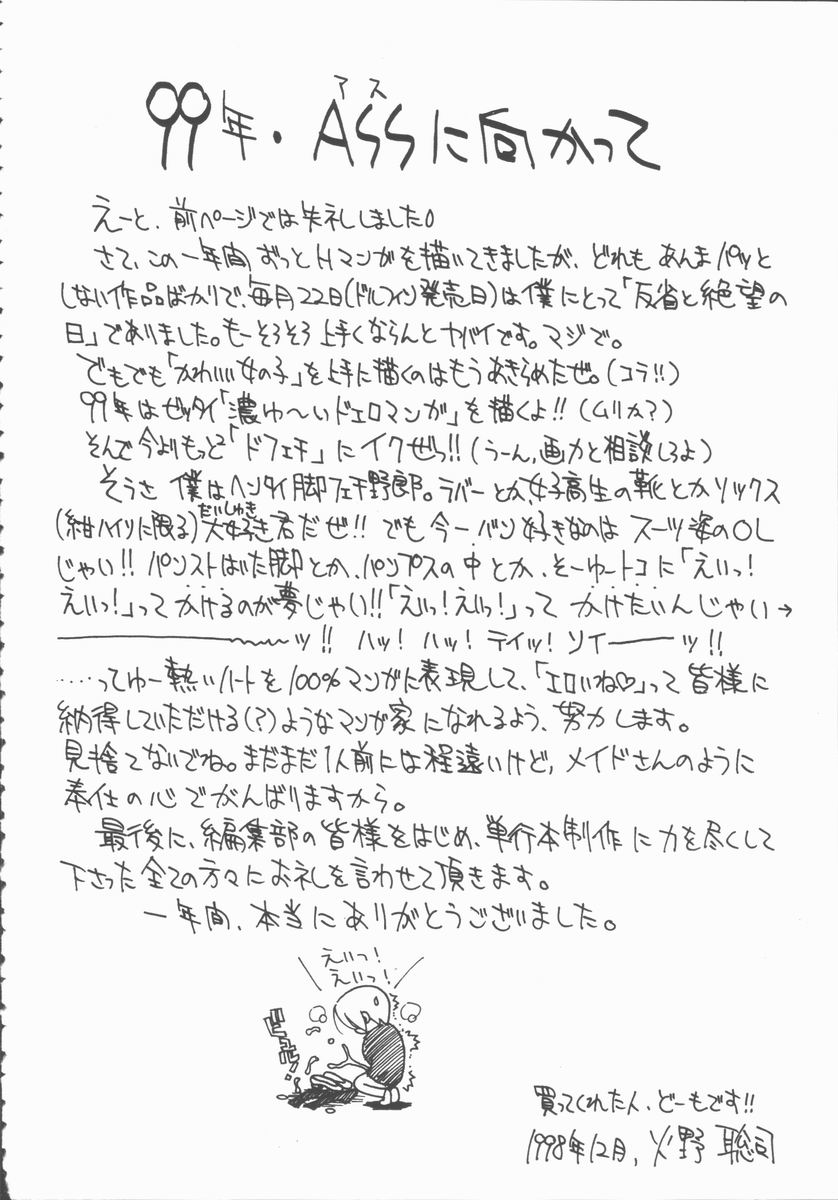 アス
99年・ASSに向かって
えーと、前ページでは失礼しました。
さて、この一年間ずっとHマンガを描いてきましたが、どれもあんまパッと
しない作品ばかりで、毎月22日(ドルフィン発売日)は僕にとって「反省と絶望の
日」でありました。もーそろそろ上手くならんとヤバイです。マジで。
でもでも「かわいい女の子」を上手に描くのはもうあきらめたぜ。(コラ!!)
99年はゼッタイ「濃ゆ〜いドエロマンガ」を描くよ!!(ムリか?)
そんで今よりもっと「ドフェチ」にイクぜっ!!(うーん,画力と相談しろよ)
そうさ 僕はヘンタイ脚フェチ野郎。ラバーとか、女子高生の靴とかソックス
(紺ハイソに限る)大好き君だぜ!!でも今一バン好きなのは スーツ姿のOL
だいしゅき
じゃい!!パンストはいた脚とか、パンプスの中とか、そーゆートコに「えいっ!
えいっ!」ってかけるのが夢じゃい!!「えいっ!えいっ!」って かけたいんじゃい→
――――――〜〜〜ッ!! ハッ! ハッ! テイッ! ソイ―――ッ!!
……ってゆー熱いハートを100%マンガに表現して、「エロいね♡」って皆様に
納得していただける(?)ようなマンガ家になれるよう、努力します。
見捨てないでね。まだまだ1人前には程遠いけど,メイドさんのように
奉仕の心でがんばりますから。
最後に、編集部の皆様をはじめ、単行本制作に力を尽くして
下さった全ての方々にお礼を言わせて頂きます。
一年間、本当にありがとうございました。
えいっ!
えいっ!
買ってくれた人、どーもです!!
1998年12月, 火野聡司